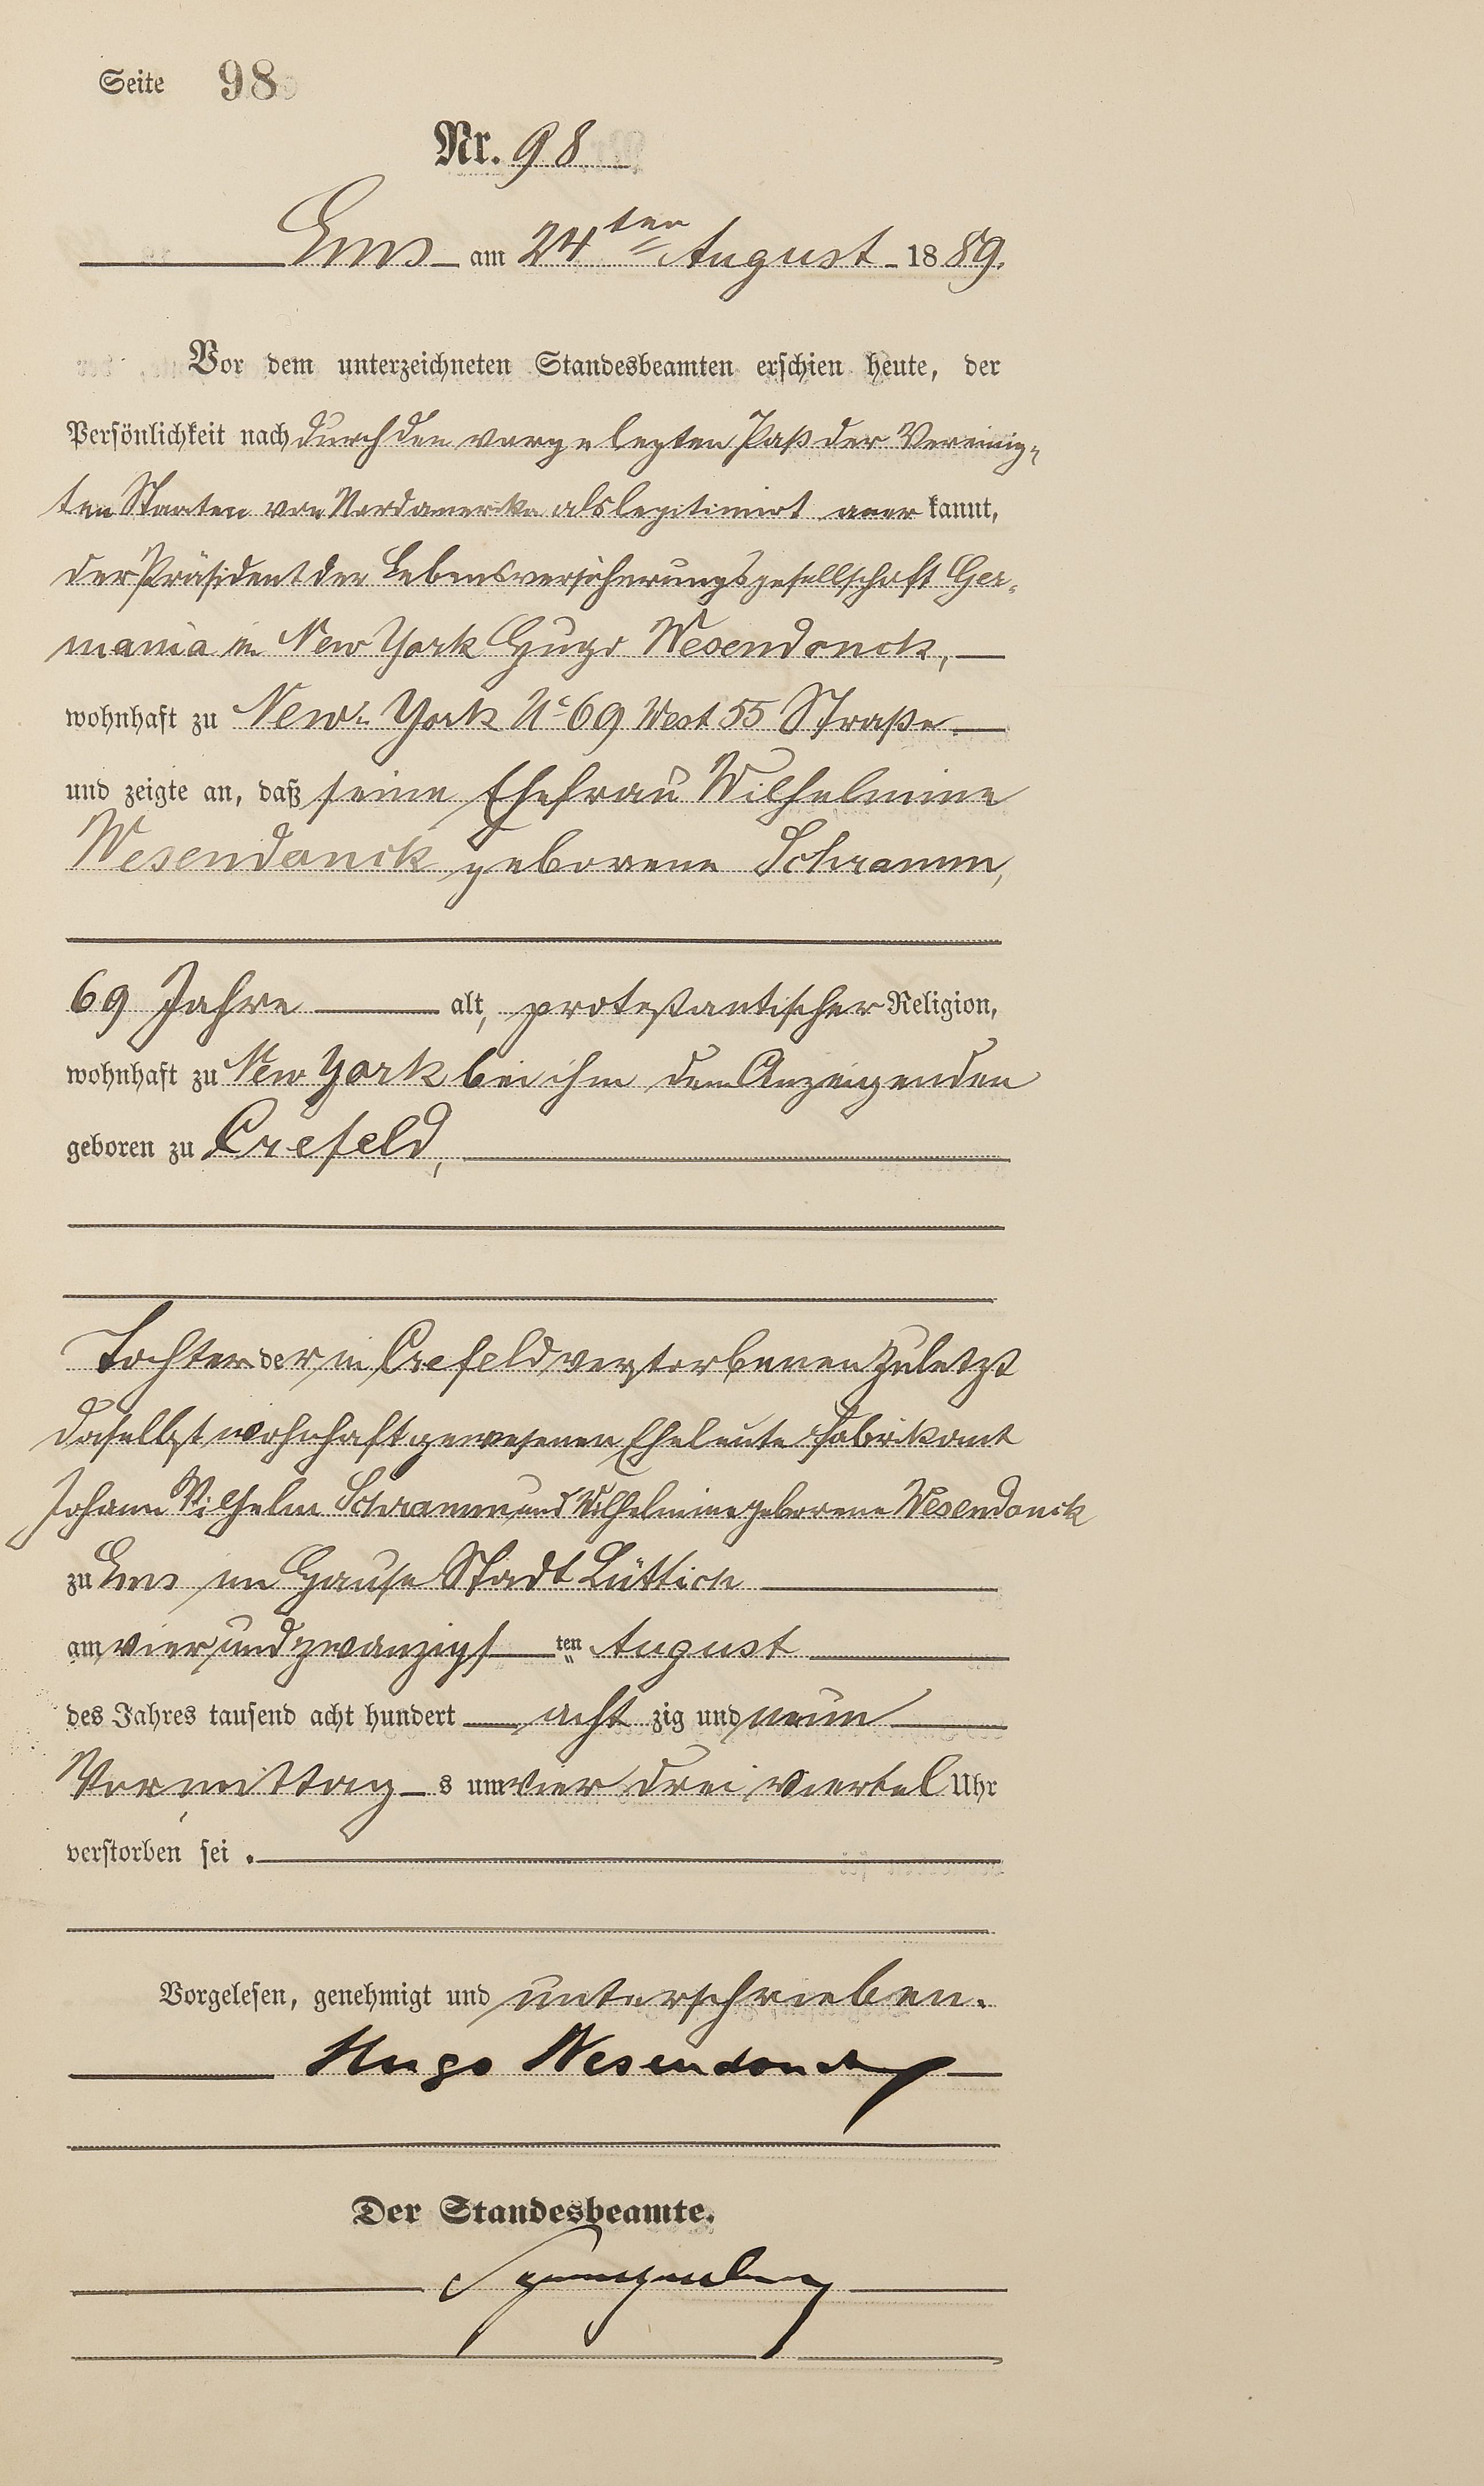 Seite 98
Nr. 98
Ems am 24ten August 1889.
Vor dem unterzeichneten Standesbeamten erschien heute, der
Persönlichkeit nach durch den vorgelegten Paß der Vereinig-
ten Staaten von Nordamerika als legitimirt anerkannt,
der Präsident der Lebensversicherungsgesellschaft Ger-
mania in New York Hugo Wesendonck,
wohnhaft zu New-York No 69 West 55 Straße
und zeigte an, daß seine Ehefrau Wilhelmine
Wesendonck geborene Schramm,
69 Jahre alt, protestantischer Religion,
wohnhaft zu New York bei ihm dem Anzeigenden
geboren zu Crefeld,
Tochter der in Crefeld verstorbenen zuletzt
daselbst wohnhaft gewesenen Eheleute Fabrikant
Johann Wilhelm Schramm und Wilhelmine geborene Wesendonck
zu Ems im Hause Stadt Lüttich
am vier und zwanzigsten August
des Jahres tausend acht hundert achtzig und neun
Vormittags um vier drei viertel Uhr
verstorben sei.
Vorgelesen, genehmigt und unterschrieben.
Hugo Wesendonck
Der Standesbeamte.